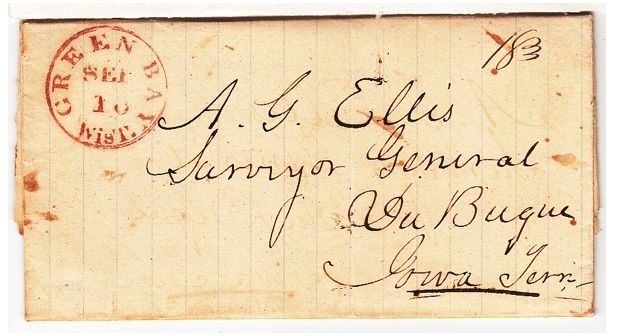 GREEN BAY
SEP
10
WisT.
18¾
A. G. Ellis
Surveyor General
Du Buque
Iowa Terr.